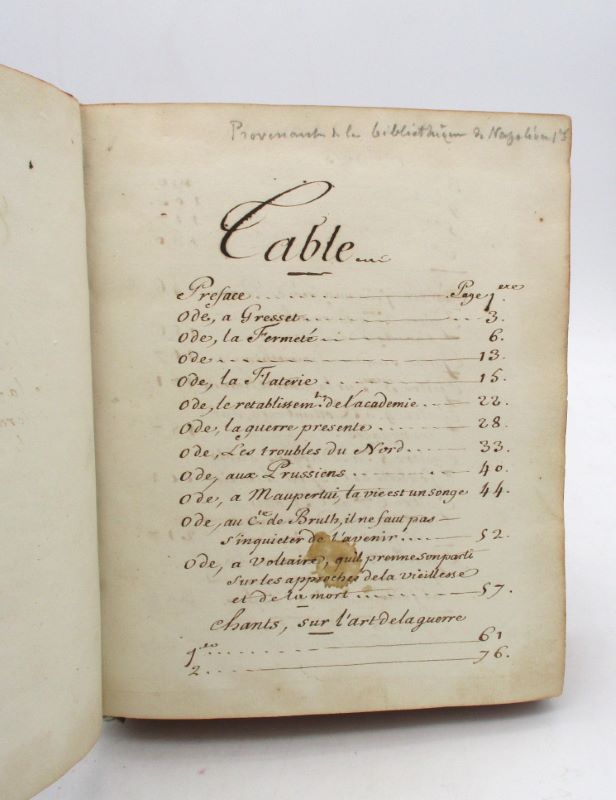 Provenant de la bibliothèque de Napoléon 1er
Table
Preface Page 1ere.
Ode, a Gresset 3.
Ode, la Fermeté 6.
Ode 13.
Ode, la Flaterie 15.
Ode, le retablissemts. de l'academie 22.
Ode, la guerre presente 28.
Ode, Les troubles du Nord 33.
Ode, aux Prussiens 40.
Ode, a Maupertui, la vie est un songe 44.
Ode, au Cte. de Bruth, il ne faut pas
s'inquieter de l'avenir 52.
Ode, a Voltaire, qu'il prenne son parti
sur les approches de la vieillesse
et de la mort 57.
Chants, sur l'art de la guerre
1er. 61
2. 76.